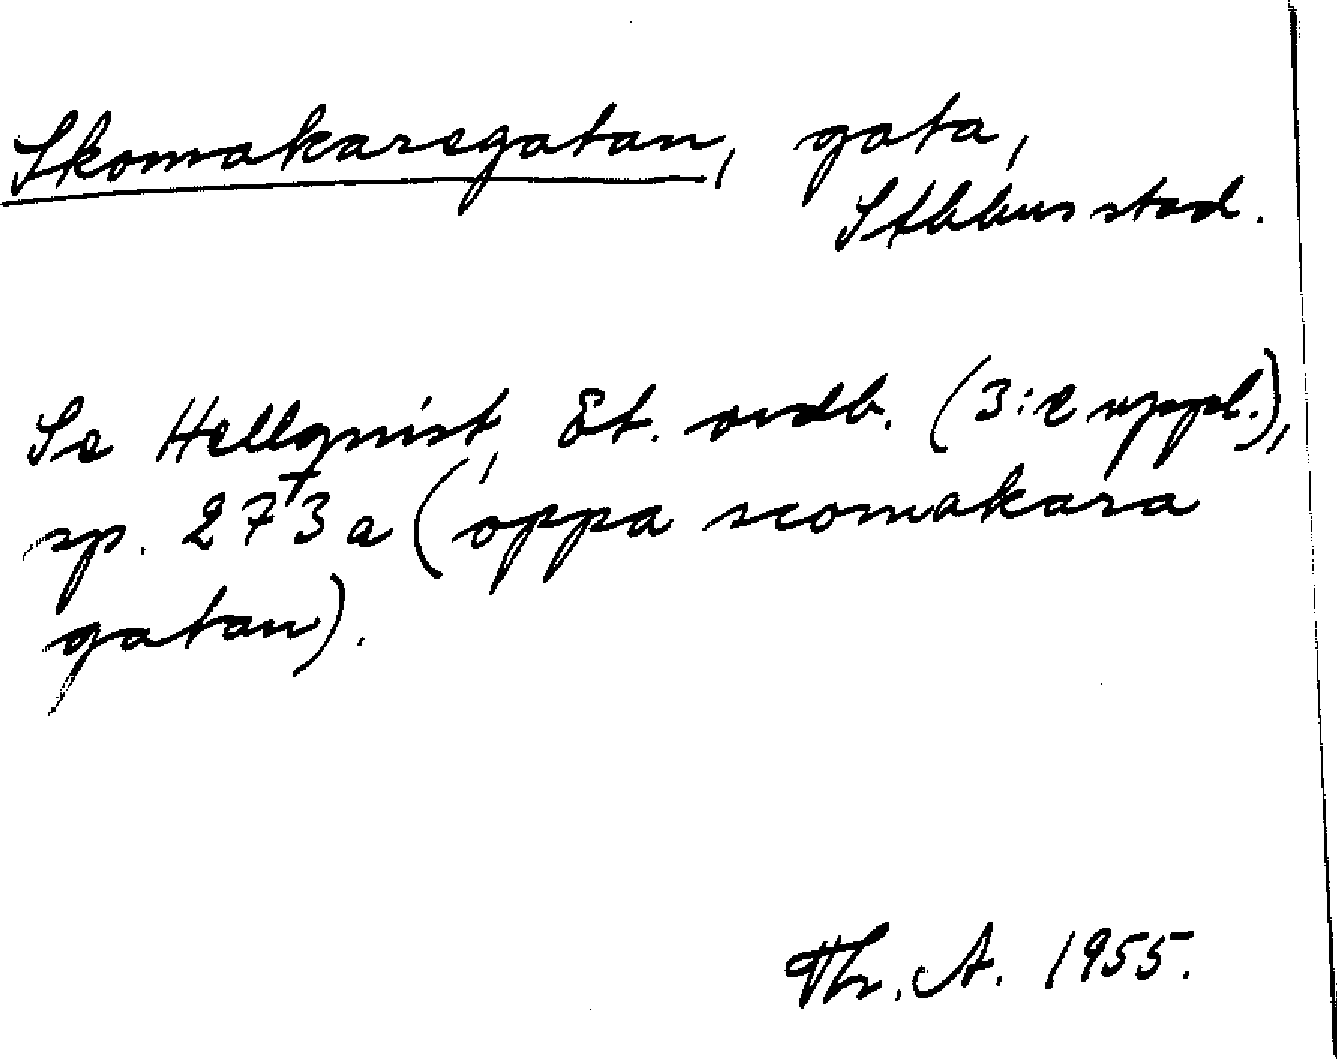 Skomakaregatan, gata,
Sthlms stad.
Se Hellquist, Et. ordb. (3:e uppl.),
sp. 273 a (oppa scomakara
gatan).
Th. A. 1955.